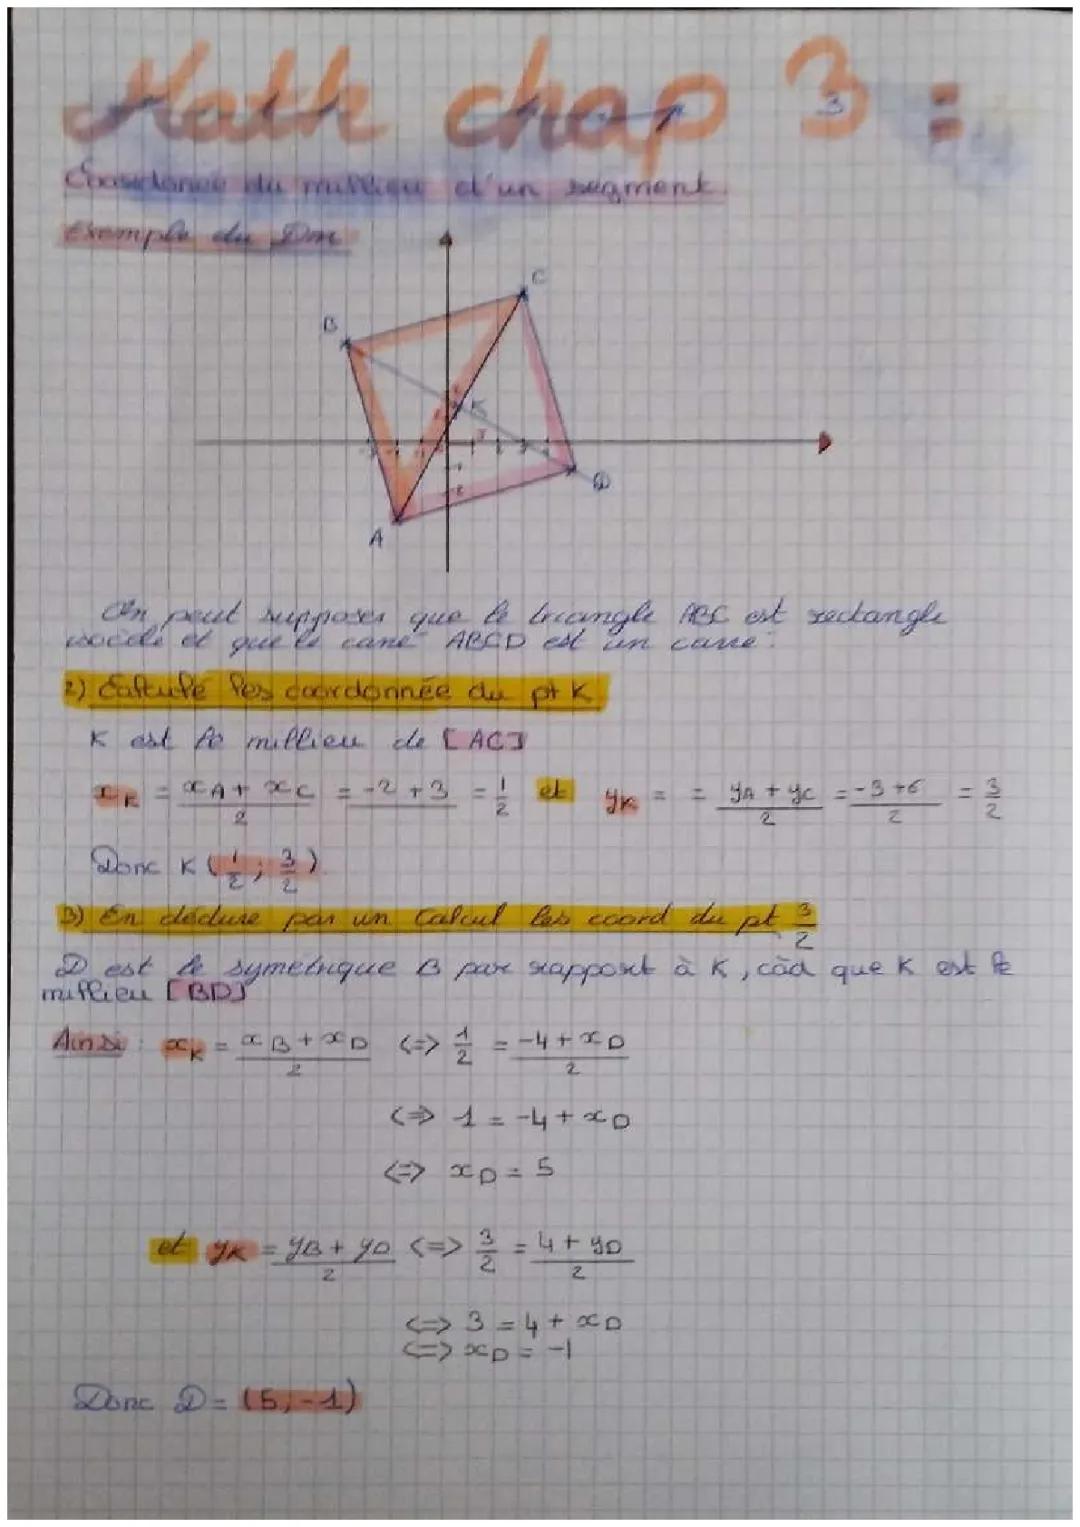 Math chap 3 :
Coordonée du millieu d'un segment.
Exemple du Dm
C
B
K
D
A
On peut supposer que le triangle ABC est rectangle
isocèle et que le carré ABCD est un carré.
2) Calculé les coordonnée du pt K
K est le millieu de [AC]
xK = xA + xC / 2 = -2 + 3 = 1/2 et yK = = yA + yC / 2 = -3+6 / 2 = 3/2
Donc K (1/2 ; 3/2).
3) En déduire par un Calcul les coord du pt 3/2
D est le symétrique B par rapport à K, càd que K est le
millieu [BD]
Ainsi : xK = xB + xD / 2 <=> 1/2 = -4 + xD / 2
<=> 1 = -4 + xD
<=> xD = 5
et yK = yB + yD / 2 <=> 3/2 = 4 + yD / 2
<=> 3 = 4 + xD
<=> xD = -1
Donc D = (5; -1)